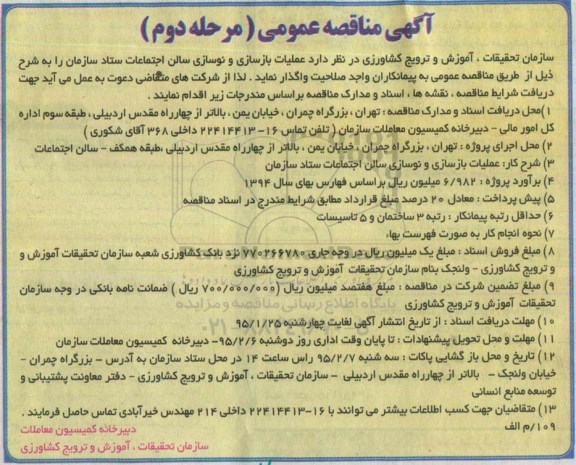 آگهی مناقصه عمومی ( مرحله دوم )
سازمان تحقیقات ، آموزش و ترویج کشاورزی در نظر دارد عملیات بازسازی و نوسازی سالن اجتماعات ستاد سازمان را به شرح
ذیل از طریق مناقصه عمومی به پیمانکاران واجد صلاحیت واگذار نماید . لذا از شرکت های متقاضی دعوت به عمل می آید جهت
دریافت شرایط مناقصه ، نقشه ها ، اسناد و مدارک مناقصه براساس مندرجات زیر اقدام نمایند .
۱)محل دریافت اسناد و مدارک مناقصه : تهران ، بزرگراه چمران ، خیابان یمن ، بالاتر از چهارراه مقدس اردبیلی ، طبقه سوم اداره
کل امور مالی - دبیرخانه کمیسیون معاملات سازمان ( تلفن تماس ۱۶- ۲۲۴۱۴۴۱۳ داخلی ۳۶۸ آقای شکوری )
۲) محل اجرای پروژه : تهران ، بزرگراه چمران ، خیابان یمن ، بالاتر از چهارراه مقدس اردبیلی ،طبقه همکف - سالن اجتماعات
۳) شرح کار: عملیات بازسازی و نوسازی سالن اجتماعات ستاد سازمان
۴) برآورد پروژه : ۶/۹۸۲ میلیون ریال براساس فهارس بهای سال ۱۳۹۴
۵) پیش پرداخت : معادل ۲۰ درصد مبلغ قرارداد مطابق شرایط مندرج در اسناد مناقصه
۶) حداقل رتبه پیمانکار : رتبه ۳ ساختمان و ۵ تاسیسات
۷) نحوه انجام کار به صورت فهرست بهاء
۸) مبلغ فروش اسناد : مبلغ یک میلیون ریال در وجه جاری ۷۷۰۲۶۶۷۸۰ نزد بانک کشاورزی شعبه سازمان تحقیقات آموزش و
و ترویج کشاورزی - ولنجک بنام سازمان تحقیقات آموزش و ترویج کشاورزی
۹) مبلغ تضمین شرکت در مناقصه : مبلغ هفتصد میلیون ریال (۷۰۰/۰۰۰/۰۰۰ ریال ) ضمانت نامه بانکی در وجه سازمان
تحقیقات آموزش و ترویج کشاورزی
۱۰) مهلت دریافت اسناد : از تاریخ انتشار آگهی لغایت چهارشنبه ۹۵/۱/۲۵
۱۱) مهلت و محل تحویل پیشنهادات : تا پایان وقت اداری روز دوشنبه ۹۵/۲/۶- دبیرخانه کمیسیون معاملات سازمان
۱۲) تاریخ و محل باز گشایی پاکات : سه شنبه ۹۵/۲/۷ راس ساعت ۱۴ در محل ستاد سازمان به آدرس - بزرگراه چمران -
خیابان ولنجک - بالاتر از چهارراه مقدس اردبیلی - سازمان تحقیقات ، آموزش و ترویج کشاورزی - دفتر معاونت پشتیبانی و
توسعه منابع انسانی
۱۳) متقاضیان جهت کسب اطلاعات بیشتر می توانند با ۱۶-۲۲۴۱۴۴۱۳ داخلی ۲۱۴ مهندس خیرآبادی تماس حاصل فرمایند .
۱۰۹/م الف
دبیرخانه کمیسیون معاملات
سازمان تحقیقات ، آموزش و ترویج کشاورزی